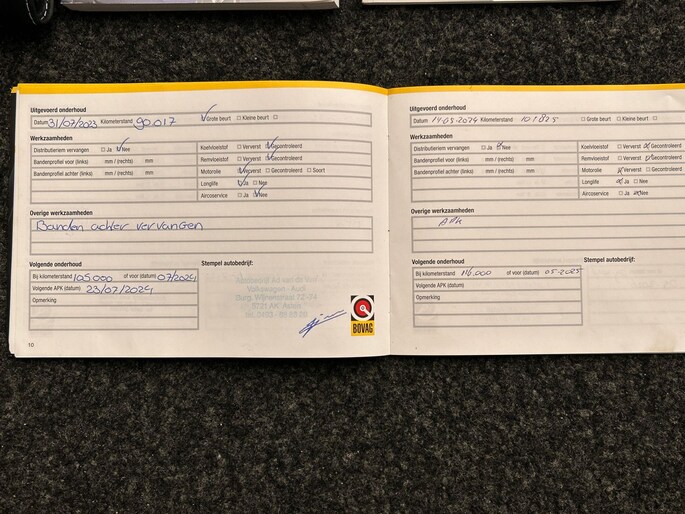 Uitgevoerd onderhoud
Datum 31/07/2023 Kilometerstand 90.017 ☑ Grote beurt ☐ Kleine beurt ☐
Werkzaamheden
Distributieriem vervangen ☐ Ja ☑ Nee
Bandenprofiel voor (links) mm / (rechts) mm
Bandenprofiel achter (links) mm / (rechts) mm
Koelvloeistof ☐ Ververst ☑ Gecontroleerd
Remvloeistof ☐ Ververst ☑ Gecontroleerd
Motorolie ☑ Ververst ☐ Gecontroleerd ☐ Soort
Longlife ☑ Ja ☐ Nee
Aircoservice ☐ Ja ☑ Nee
Overige werkzaamheden
Banden achter vervangen
Volgende onderhoud
Bij kilometerstand 105.000 of voor (datum) 07/2024
Volgende APK (datum) 23/07/2024
Opmerking
Stempel autobedrijf:
Volkswagen - Audi
BOVAG
10
Uitgevoerd onderhoud
Datum 14-05-2024 Kilometerstand 101825 ☐ Grote beurt ☐ Kleine beurt ☐
Werkzaamheden
Distributieriem vervangen ☐ Ja ☒ Nee
Bandenprofiel voor (links) mm / (rechts) mm
Bandenprofiel achter (links) mm / (rechts) mm
Koelvloeistof ☐ Ververst ☒ Gecontroleerd
Remvloeistof ☐ Ververst ☒ Gecontroleerd
Motorolie ☒ Ververst ☐ Gecontroleerd
Longlife ☒ Ja ☐ Nee
Aircoservice ☐ Ja ☒ Nee
Overige werkzaamheden
APK
Volgende onderhoud
Bij kilometerstand 116.000 of voor (datum) 05-2025
Volgende APK (datum)
Opmerking
Stempel autobedrijf: